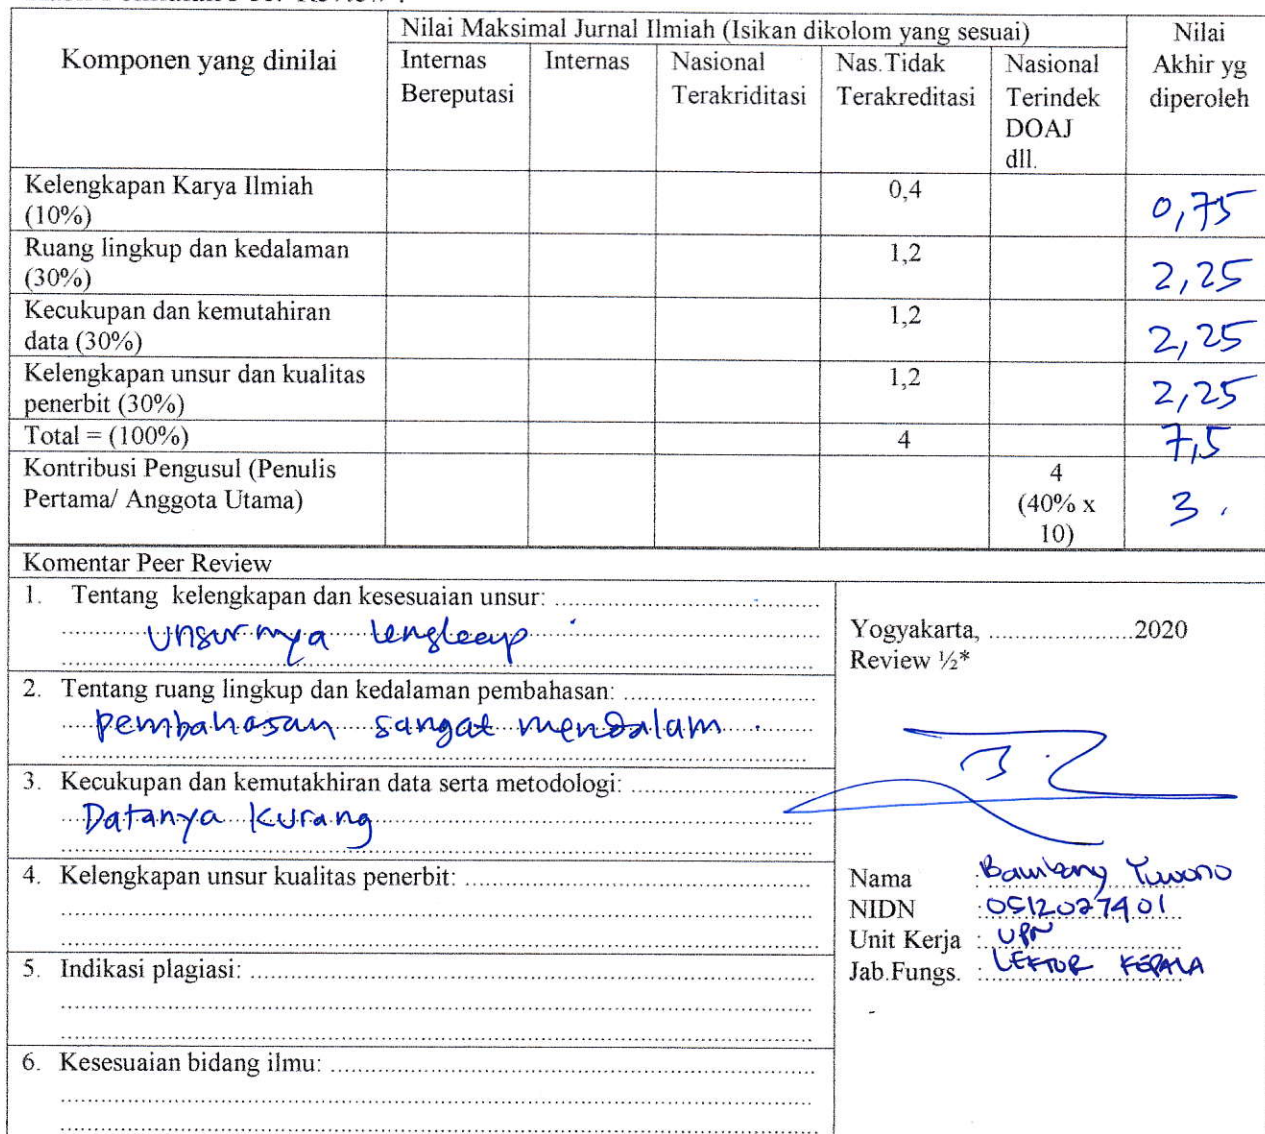 Review :
Komponen yang dinilai
Nilai Maksimal Jurnal Ilmiah (Isikan dikolom yang sesuai)
Nilai Akhir yg diperoleh
Internas Bereputasi
Internas
Nasional Terakriditasi
Nas.Tidak Terakreditasi
Nasional Terindek DOAJ dll.
Kelengkapan Karya Ilmiah (10%)
0,4
0,75
Ruang lingkup dan kedalaman (30%)
1,2
2,25
Kecukupan dan kemutahiran data (30%)
1,2
2,25
Kelengkapan unsur dan kualitas penerbit (30%)
1,2
2,25
Total = (100%)
4
7,5
Kontribusi Pengusul (Penulis Pertama/ Anggota Utama)
4 (40% x 10)
3.
Komentar Peer Review
1. Tentang kelengkapan dan kesesuaian unsur:
Unsurnya lengkap
2. Tentang ruang lingkup dan kedalaman pembahasan:
pembahasan sangat mendalam.
3. Kecukupan dan kemutakhiran data serta metodologi:
Datanya kurang
4. Kelengkapan unsur kualitas penerbit:
5. Indikasi plagiasi:
6. Kesesuaian bidang ilmu:
Yogyakarta, ......................2020
Review ½*
Nama : Bambang Yuwono
NIDN : 0512027401
Unit Kerja : UPN
Jab.Fungs. : LEKTOR KEPALA